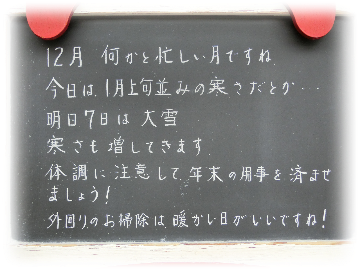 12月 何かと忙しい月ですね
今日は、1月上旬並みの寒さだとか…
明日7日は 大雪
寒さも増してきます
体調に注意して、年末の用事を済ませ
ましょう!
外回りのお掃除は、暖かい日がいいですね!